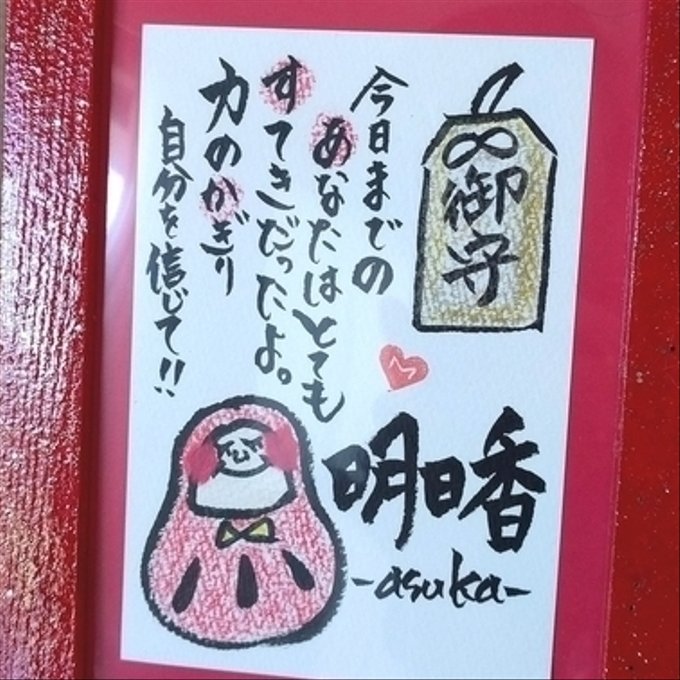 御守
今日までの
あなたはとても
すてきだったよ。
力のかぎり
自分を信じて!!
明日香
-asuka-